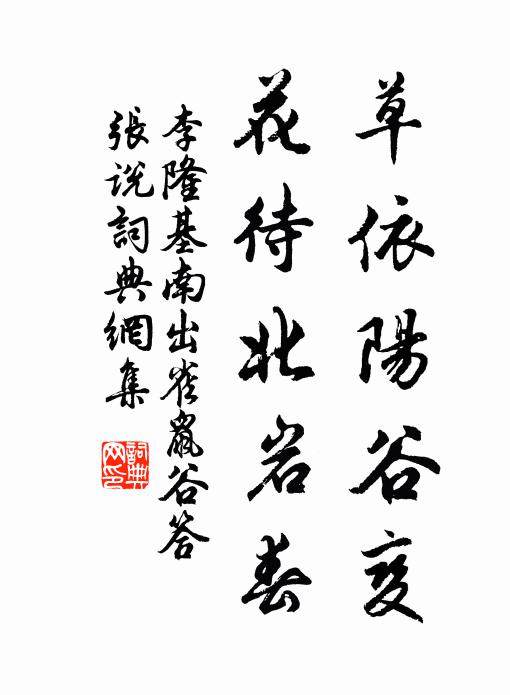 草依陽谷变
花待北岩春
李隆基南出雀鼠谷答
張说詞典網集
詞典网印